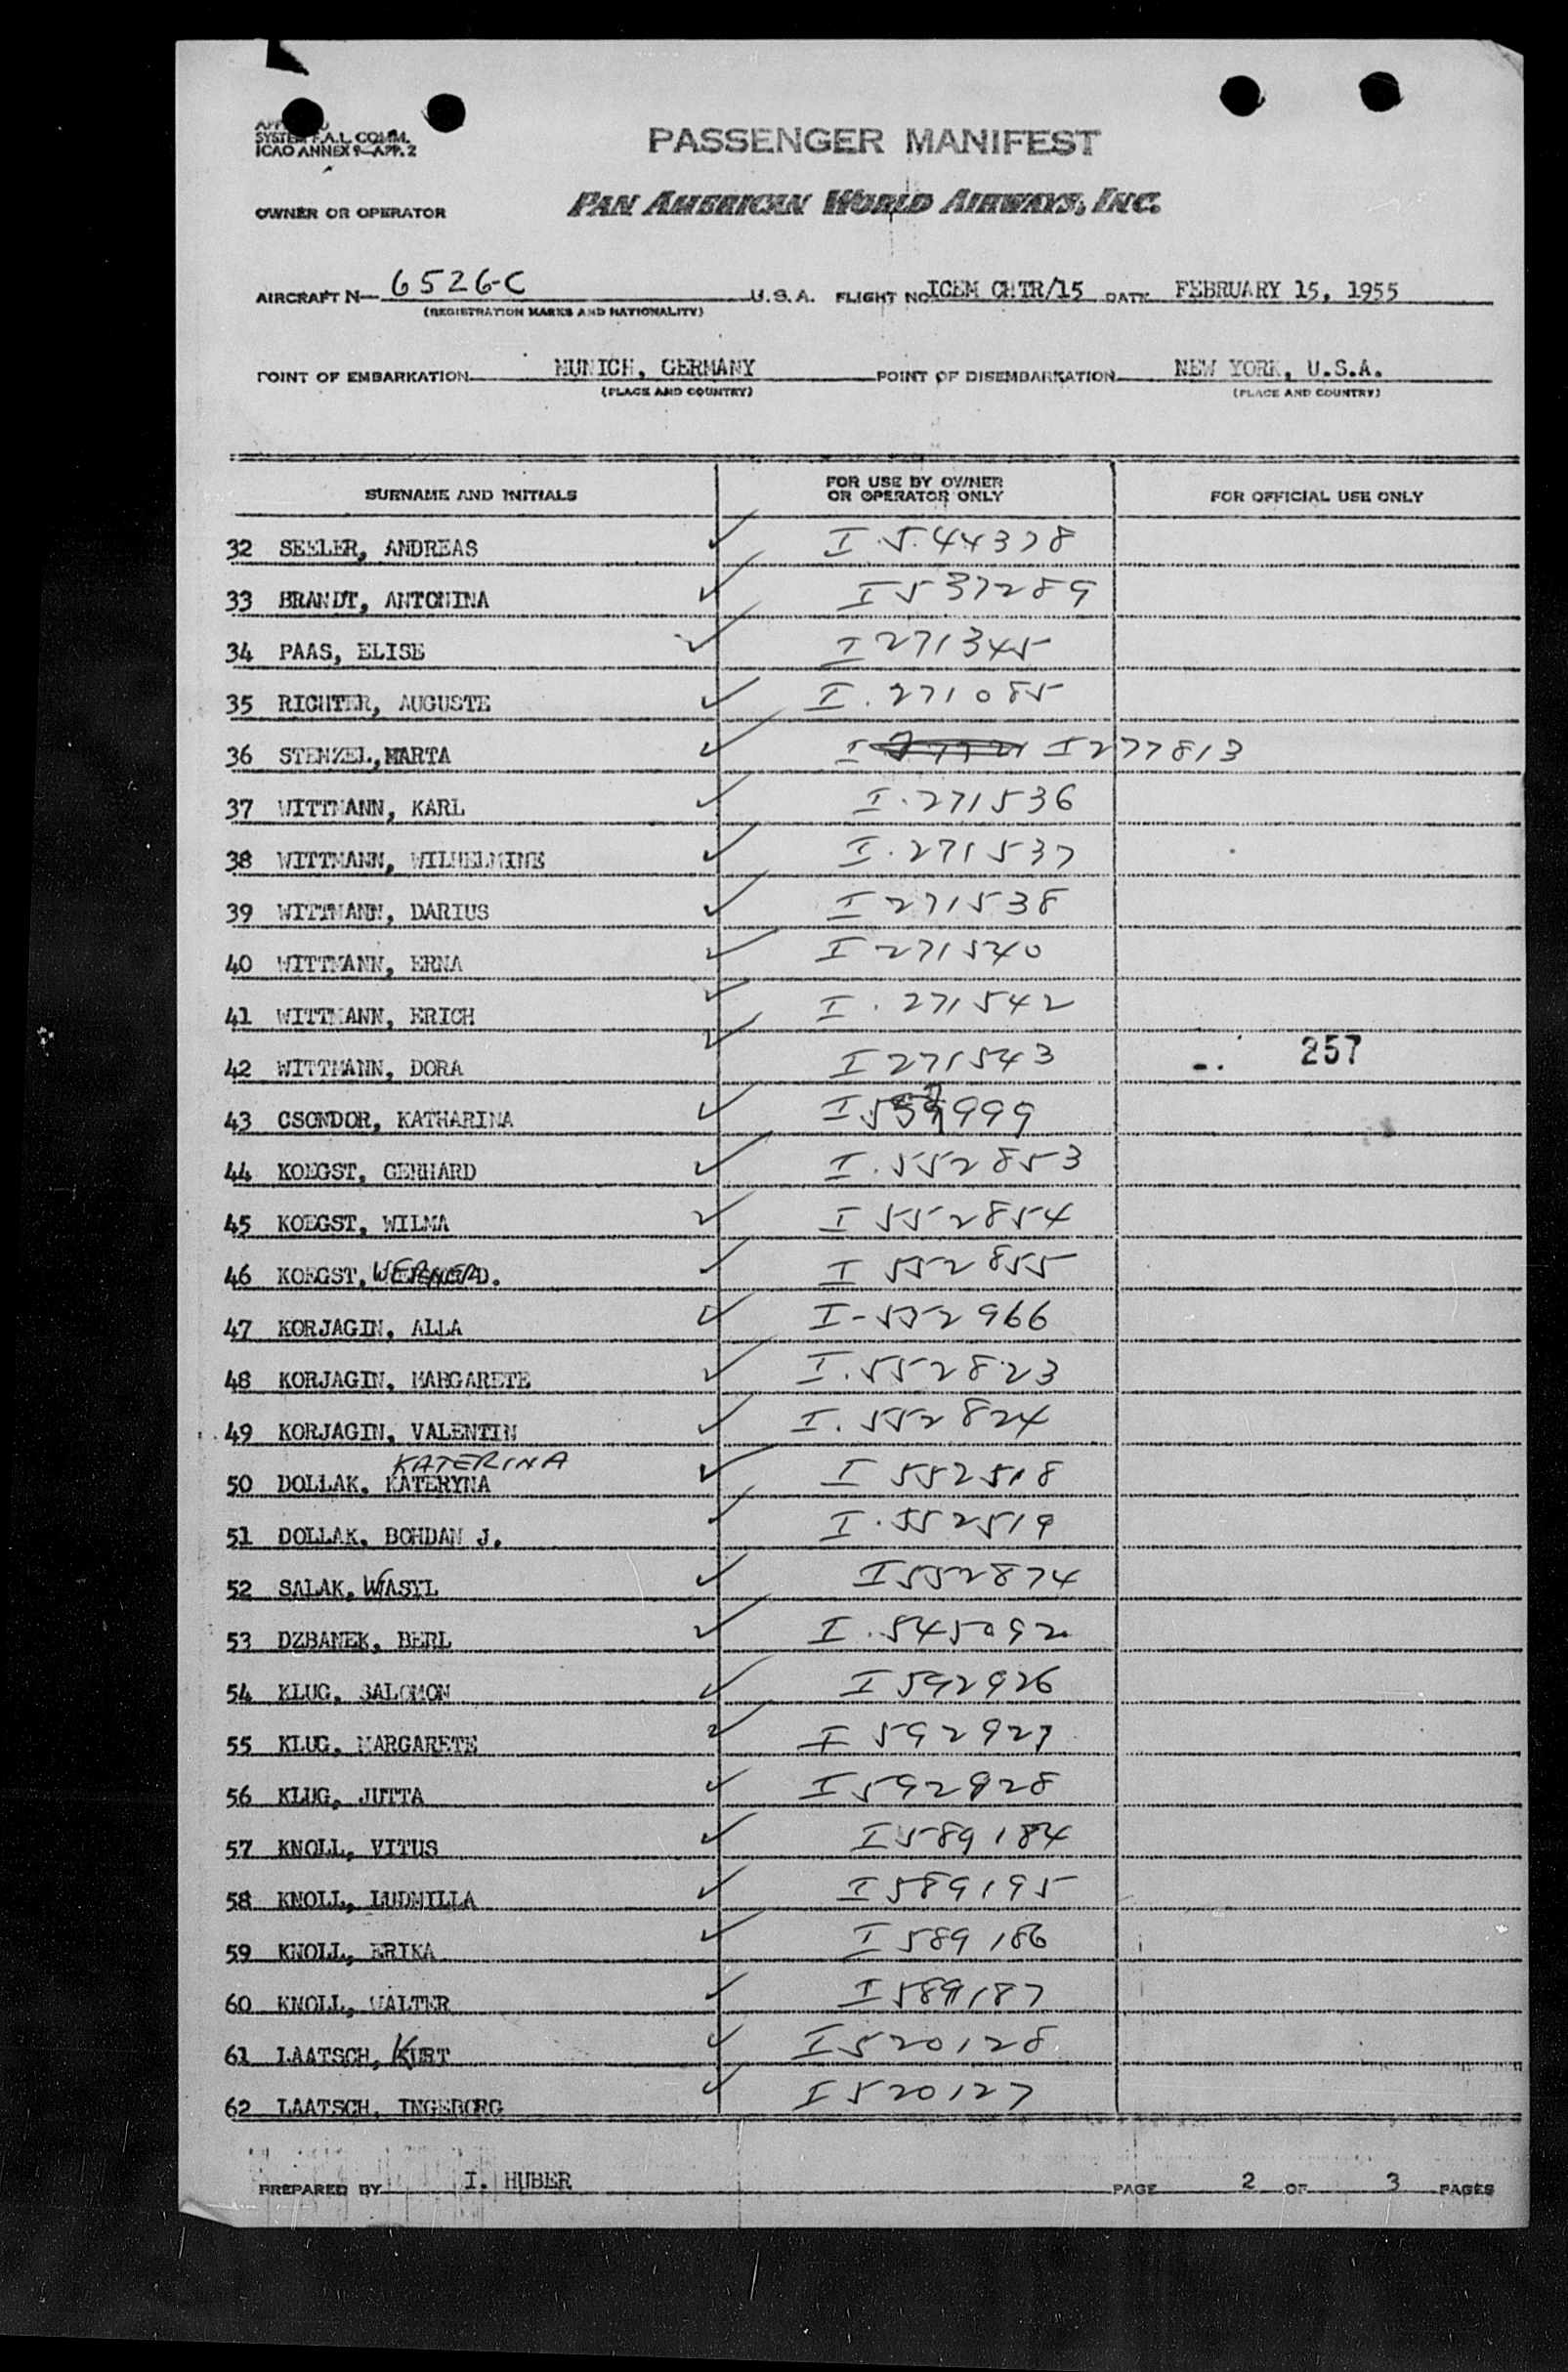 SYSTEM F.A.L. COMM.
ICAO ANNEX 9-APP. 2
PASSENGER MANIFEST
OWNER OR OPERATOR PAN AMERICAN WORLD AIRWAYS, INC.
AIRCRAFT N- 6526-C U.S.A. FLIGHT NO ICEM CHTR/15 DATE FEBRUARY 15, 1955
(REGISTRATION MARKS AND NATIONALITY)
POINT OF EMBARKATION MUNICH, GERMANY POINT OF DISEMBARKATION NEW YORK, U.S.A.
(PLACE AND COUNTRY) (PLACE AND COUNTRY)
SURNAME AND INITIALS FOR USE BY OWNER OR OPERATOR ONLY FOR OFFICIAL USE ONLY
32 SEELER, ANDREAS ✓ I.5.44378
33 BRANDT, ANTONINA ✓ I537289
34 PAAS, ELISE ✓ I271345
35 RICHTER, AUGUSTE ✓ I.271085
36 STENZEL,MARTA ✓ I I277813
37 WITTMANN, KARL ✓ I.271536
38 WITTMANN, WILHELMINE ✓ I.271537
39 WITTMANN, DARIUS ✓ I271538
40 WITTMANN, ERNA ✓ I271540
41 WITTMANN, ERICH ✓ I.271542
42 WITTMANN, DORA ✓ I271543 257
43 CSONDOR, KATHARINA ✓
44 KOEGST, GERHARD ✓ I.552853
45 KOEGST, WILMA ✓ I552854
46 KOEGST, WERNER D. ✓ I552855
47 KORJAGIN, ALLA ✓ I-552966
48 KORJAGIN, MARGARETE ✓ I.552823
49 KORJAGIN, VALENTIN ✓ I.552824
KATERINA
50 DOLLAK, KATERYNA ✓ I552518
51 DOLLAK, BOHDAN J. ✓ I.552519
52 SALAK, WASYL ✓ I552874
53 DZBANEK, BERL ✓ I.545092
54 KLUG, SALOMON ✓ I592926
55 KLUG, MARGARETE ✓ I592927
56 KLUG, JUTTA ✓ I592928
57 KNOLL, VITUS ✓ I589184
58 KNOLL, LUDMILLA ✓ I589195
59 KNOLL, ERIKA ✓ I589186
60 KNOLL, WALTER ✓ I589187
61 LAATSCH, KURT ✓ I520128
62 LAATSCH, INGEBORG ✓ I520127
PREPARED BY I. HUBER PAGE 2 OF 3 PAGES